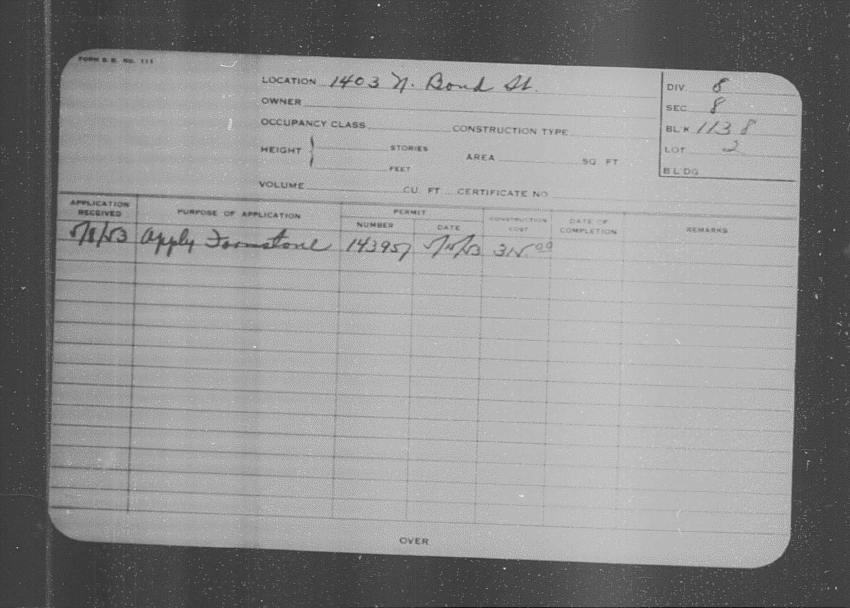 FORM B. B. NO. 111
LOCATION 1403 N. Bond St.
DIV. 8
OWNER
SEC 8
OCCUPANCY CLASS CONSTRUCTION TYPE
BL'K 1138
HEIGHT STORIES
FEET
AREA SQ FT
LOT 2
B'L'DG
VOLUME CU. FT CERTIFICATE NO
APPLICATION RECEIVED PURPOSE OF APPLICATION PERMIT NUMBER DATE CONSTRUCTION COST DATE OF COMPLETION REMARKS
5/8/53 Apply Formstone 143957 5/15/53 315.00
OVER